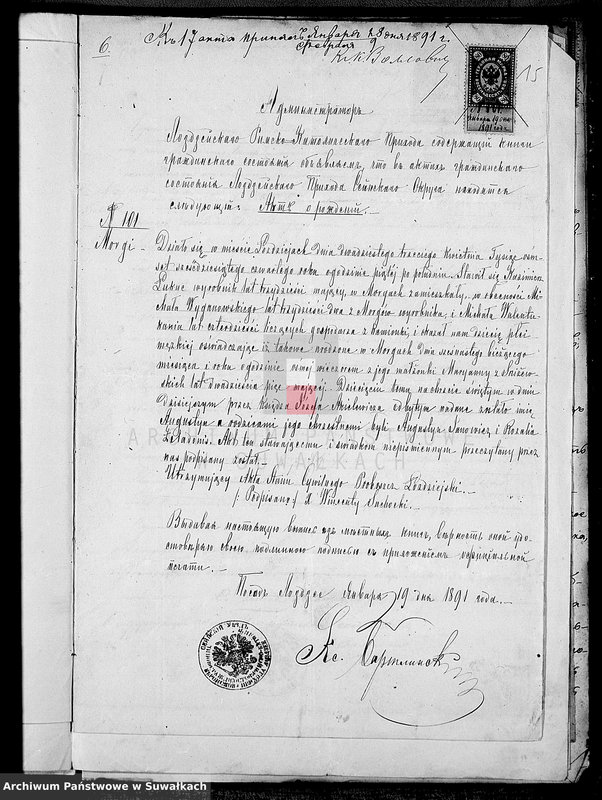 6.
Къ 17 акта принятъ Января 28 дня 1891 г.
Февраля 9
15
Января 19 дня
1891 года
Администраторъ
Лоздзейскаго Римско-Католическаго Прихода содержащій книги
гражданскаго состоянія объявляетъ, что въ актахъ гражданскаго
состоянія Лоздзейскаго Прихода Сейнскаго Округа находится
слѣдующій: Актъ о рожденіи.
№ 101
Morgi -
Działo się w mieście Łoździejach dnia dwudziestego trzeciego Kwietnia Tysiąc ośm-
set sześćdziesiątego czwartego roku o godzinie piątej po południu. Stawił się Kazimierz
Lukuc wyrobnik lat trzydzieści mający, w Morgach zamieszkały, w obecności Mi-
chała Wyganowskiego lat trzydzieści dwa z Morgów wyrobnika, i Michała Walentu-
kania lat czterdzieści liczących gospodarza z Kamionki, i okazał nam dziecię płci
męzkiej oświadczając iż takowe urodzone w Morgach dnia bieżącego
miesiąca i roku o godzinie osmej wieczorem z jego małżonki Maryanny z
lat dwadzieścia pięć mającej. Dziecięciu temu na chrzcie świętym w dniu
dzisiejszym przez Księdza Józefa odbytym nadane zostało imię
Augustyn a rodzicami jego chrzestnemi byli Augustyn Janowicz i Rozalia
Akt ten stawającemu i świadkom niepiśmiennym przeczytany przez
nas podpisany został.-
Utrzymujący Akta Stanu Cywilnego Proboszcz Łoździejski.
/: Podpisano :/ X Wincenty Suchocki.-
Выдавая настоящую выпись изъ мѣстныхъ книгъ, вѣрность оной удо-
стовѣряю своею подлинною подписью съ приложеніемъ оффиціальной
печати.-
Посадъ Лоздзее Января 19 дня 1891 года.-
Кс.
ARCHIWUM PAŃSTWOWE
W SUWAŁKACH
Archiwum Państwowe w Suwałkach